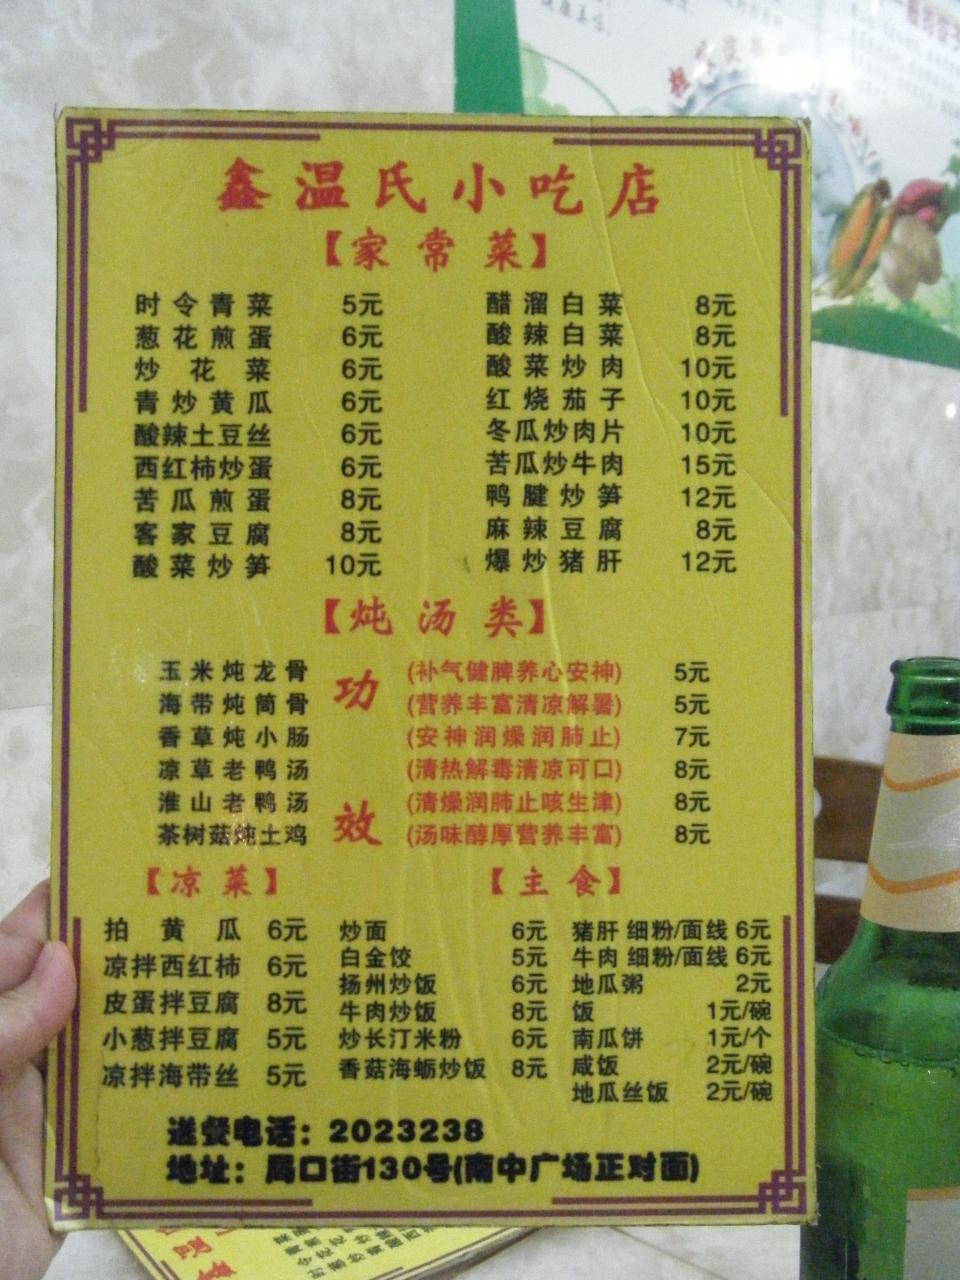 鑫温氏小吃店
【家常菜】
时令青菜 5元 醋溜白菜 8元
葱花煎蛋 6元 酸辣白菜 8元
炒花菜 6元 酸菜炒肉 10元
青炒黄瓜 6元 红烧茄子 10元
酸辣土豆丝 6元 冬瓜炒肉片 10元
西红柿炒蛋 6元 苦瓜炒牛肉 15元
苦瓜煎蛋 8元 鸭腱炒笋 12元
客家豆腐 8元 麻辣豆腐 8元
酸菜炒笋 10元 爆炒猪肝 12元
【炖汤类】
功效
玉米炖龙骨 (补气健脾养心安神) 5元
海带炖筒骨 (营养丰富清凉解暑) 5元
香草炖小肠 (安神润燥润肺止) 7元
凉草老鸭汤 (清热解毒清凉可口) 8元
淮山老鸭汤 (清燥润肺止咳生津) 8元
茶树菇炖土鸡 (汤味醇厚营养丰富) 8元
【凉菜】
拍黄瓜 6元
凉拌西红柿 6元
皮蛋拌豆腐 8元
小葱拌豆腐 5元
凉拌海带丝 5元
【主食】
炒面 6元 猪肝 细粉/面线 6元
白金饺 5元 牛肉 细粉/面线 6元
扬州炒饭 6元 地瓜粥 2元
牛肉炒饭 8元 饭 1元/碗
炒长汀米粉 6元 南瓜饼 1元/个
香菇海蛎炒饭 8元 咸饭 2元/碗
地瓜丝饭 2元/碗
送餐电话：2023238
地址：局口街130号(南中广场正对面)